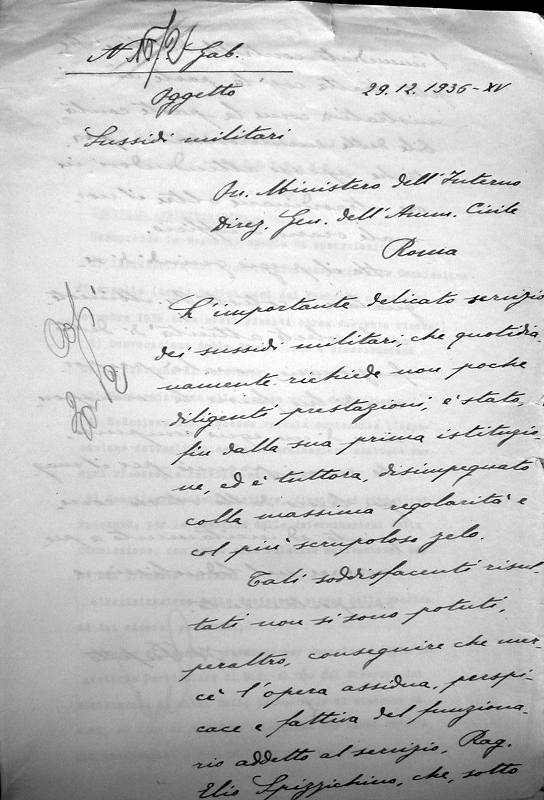 Gab.
Oggetto
29.12.1936-XV
Sussidi militari
On. Ministero dell'Interno
Direz. Gen. dell'Amm. Civile
Roma
L'importante delicato servizio
dei sussidi militari, che quotidia-
namente richiede non poche
diligenti prestazioni, è stato,
fin dalla sua prima istituzio-
ne, ed è tuttora, disimpegnato
colla massima regolarità e
col più scrupoloso zelo.
Tali soddisfacenti risul-
tati non si sono potuti,
peraltro, conseguire che mer-
cè l'opera assidua, perspi-
cace e fattiva del funziona-
rio addetto al servizio, Rag.
Elio Spizzichino, che, sotto